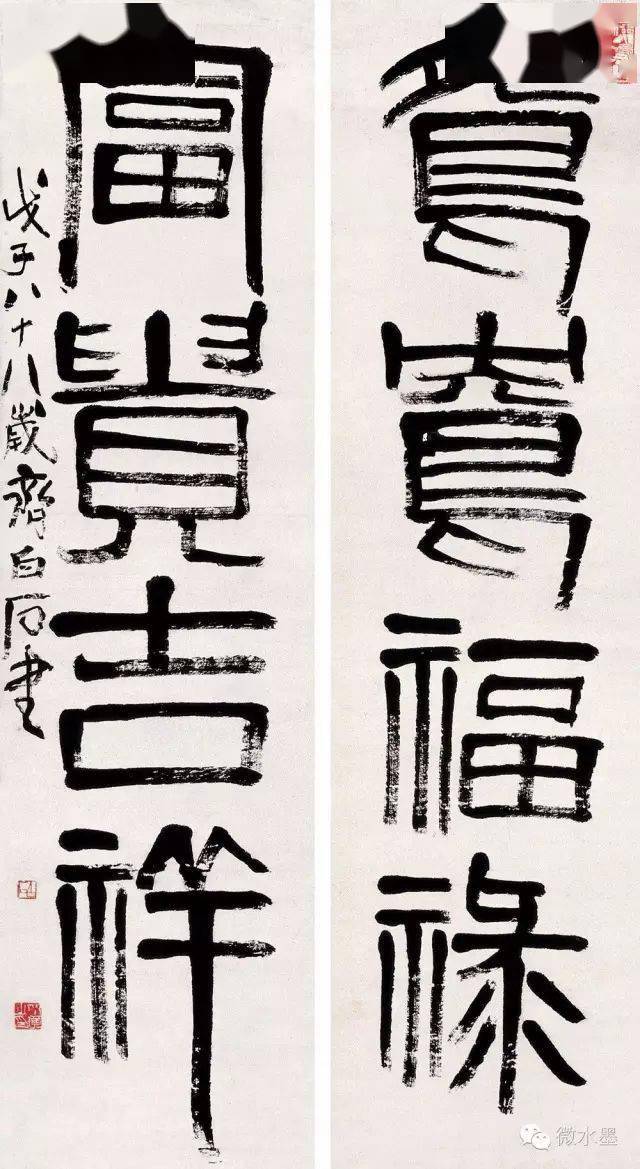 福祿
富貴吉祥
戊子八十八歲齊白石書
微水墨